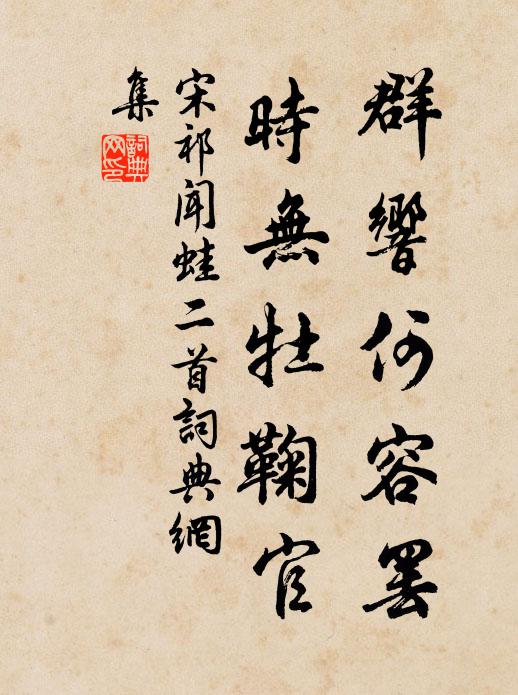 群響何容罢
時無牡鞠官
宋祁聞蛙二首詞典網
集
詞典网印